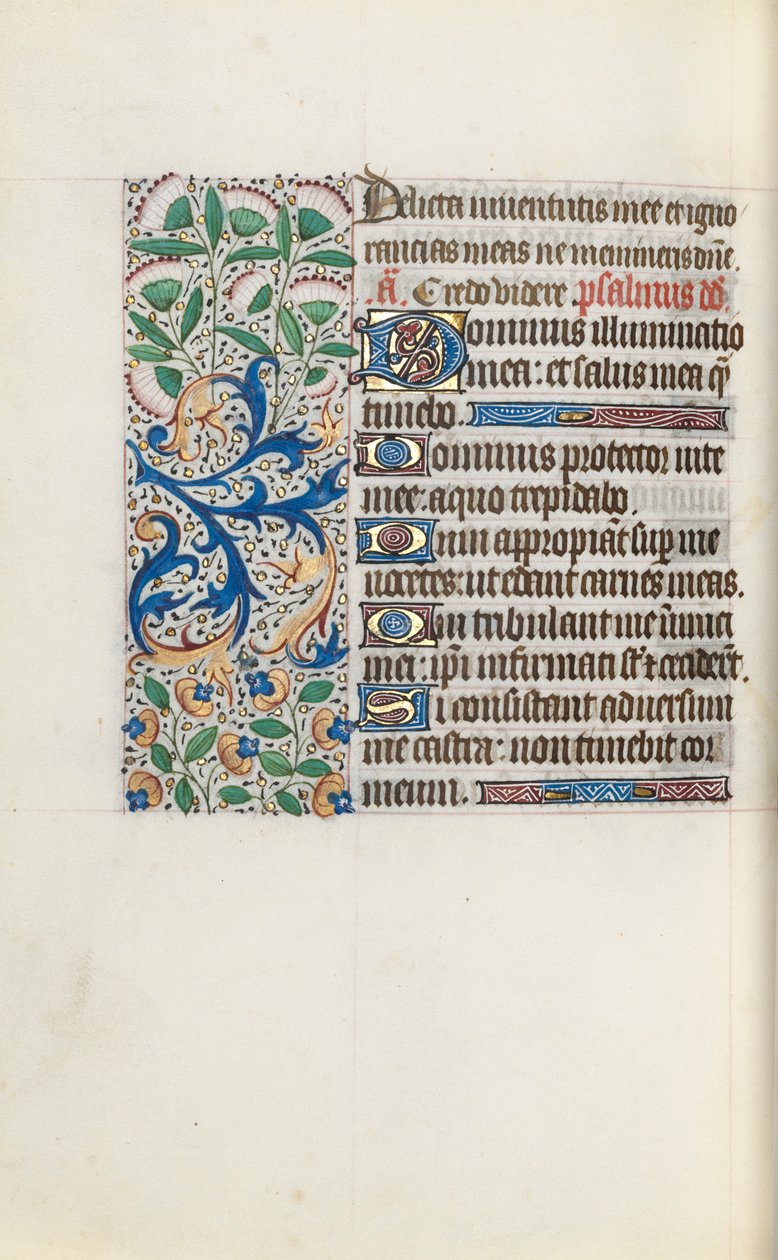 Delicta iuventutis mee et igno
rancias meas ne memineris dn̄e.
.ā. Credo videre. psalmus dd̄.
Dominus illuminatio
mea: et salus mea q̄
timebo.
Dominus protector vite
mee: a quo trepidabo.
Dum appropiāt sup̄ me
nocētes: ut edant carnes meas.
Qui tribulant me īnimici
mei: ip̄i infirmati st̄ ⁊ ceciderūt.
Si consistant adversum
me castra: non timebit cor
meum.